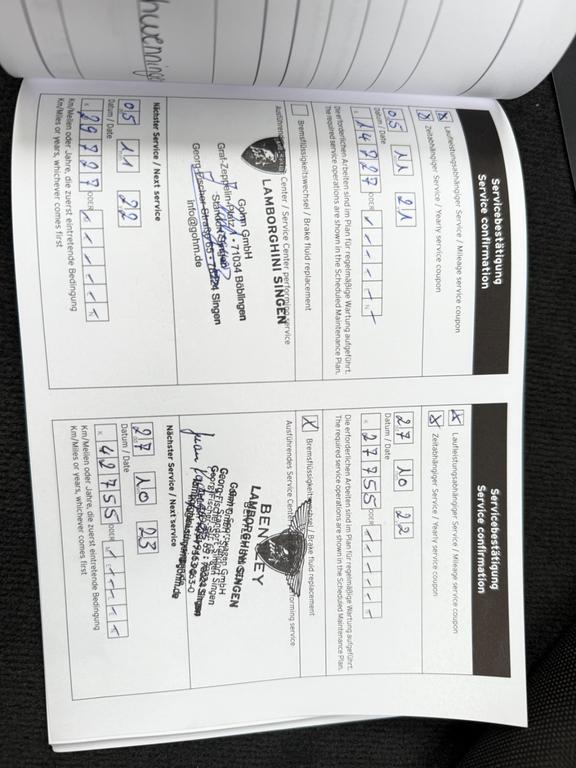 Servicebestätigung
Service confirmation
X Laufleistungsabhängiger Service / Mileage service coupon
X Zeitabhängiger Service / Yearly service coupon
05 11 21
Datum / Date
14727 ODER
Die erforderlichen Arbeiten sind im Plan für regelmäßige Wartung aufgeführt.
The required service operations are shown in the Scheduled Maintenance Plan.
Bremsflüssigkeitswechsel / Brake fluid replacement
Center / Service Center performing service
LAMBORGHINI SINGEN
Gohm GmbH
Graf-Zeppelin-Platz 1 • 71034 Böblingen
Georg-Fischer-Straße 65 • 78224 Singen
info@gohm.de
Nächster Service / Next service
05 11 22
Datum / Date
29727 ODER
Km/Meilen oder Jahre, die zuerst eintretende Bedingung
Km/Miles or years, whichever comes first
Servicebestätigung
Service confirmation
X Laufleistungsabhängiger Service / Mileage service coupon
X Zeitabhängiger Service / Yearly service coupon
27 10 22
Datum / Date
27755 ODER
Die erforderlichen Arbeiten sind im Plan für regelmäßige Wartung aufgeführt.
The required service operations are shown in the Scheduled Maintenance Plan.
X Bremsflüssigkeitswechsel / Brake fluid replacement
Ausführendes Service Center performing service
BENTLEY
LAMBORGHINI SINGEN
Nächster Service / Next service
27 10 23
Datum / Date
42755 ODER
Km/Meilen oder Jahre, die zuerst eintretende Bedingung
Km/Miles or years, whichever comes first